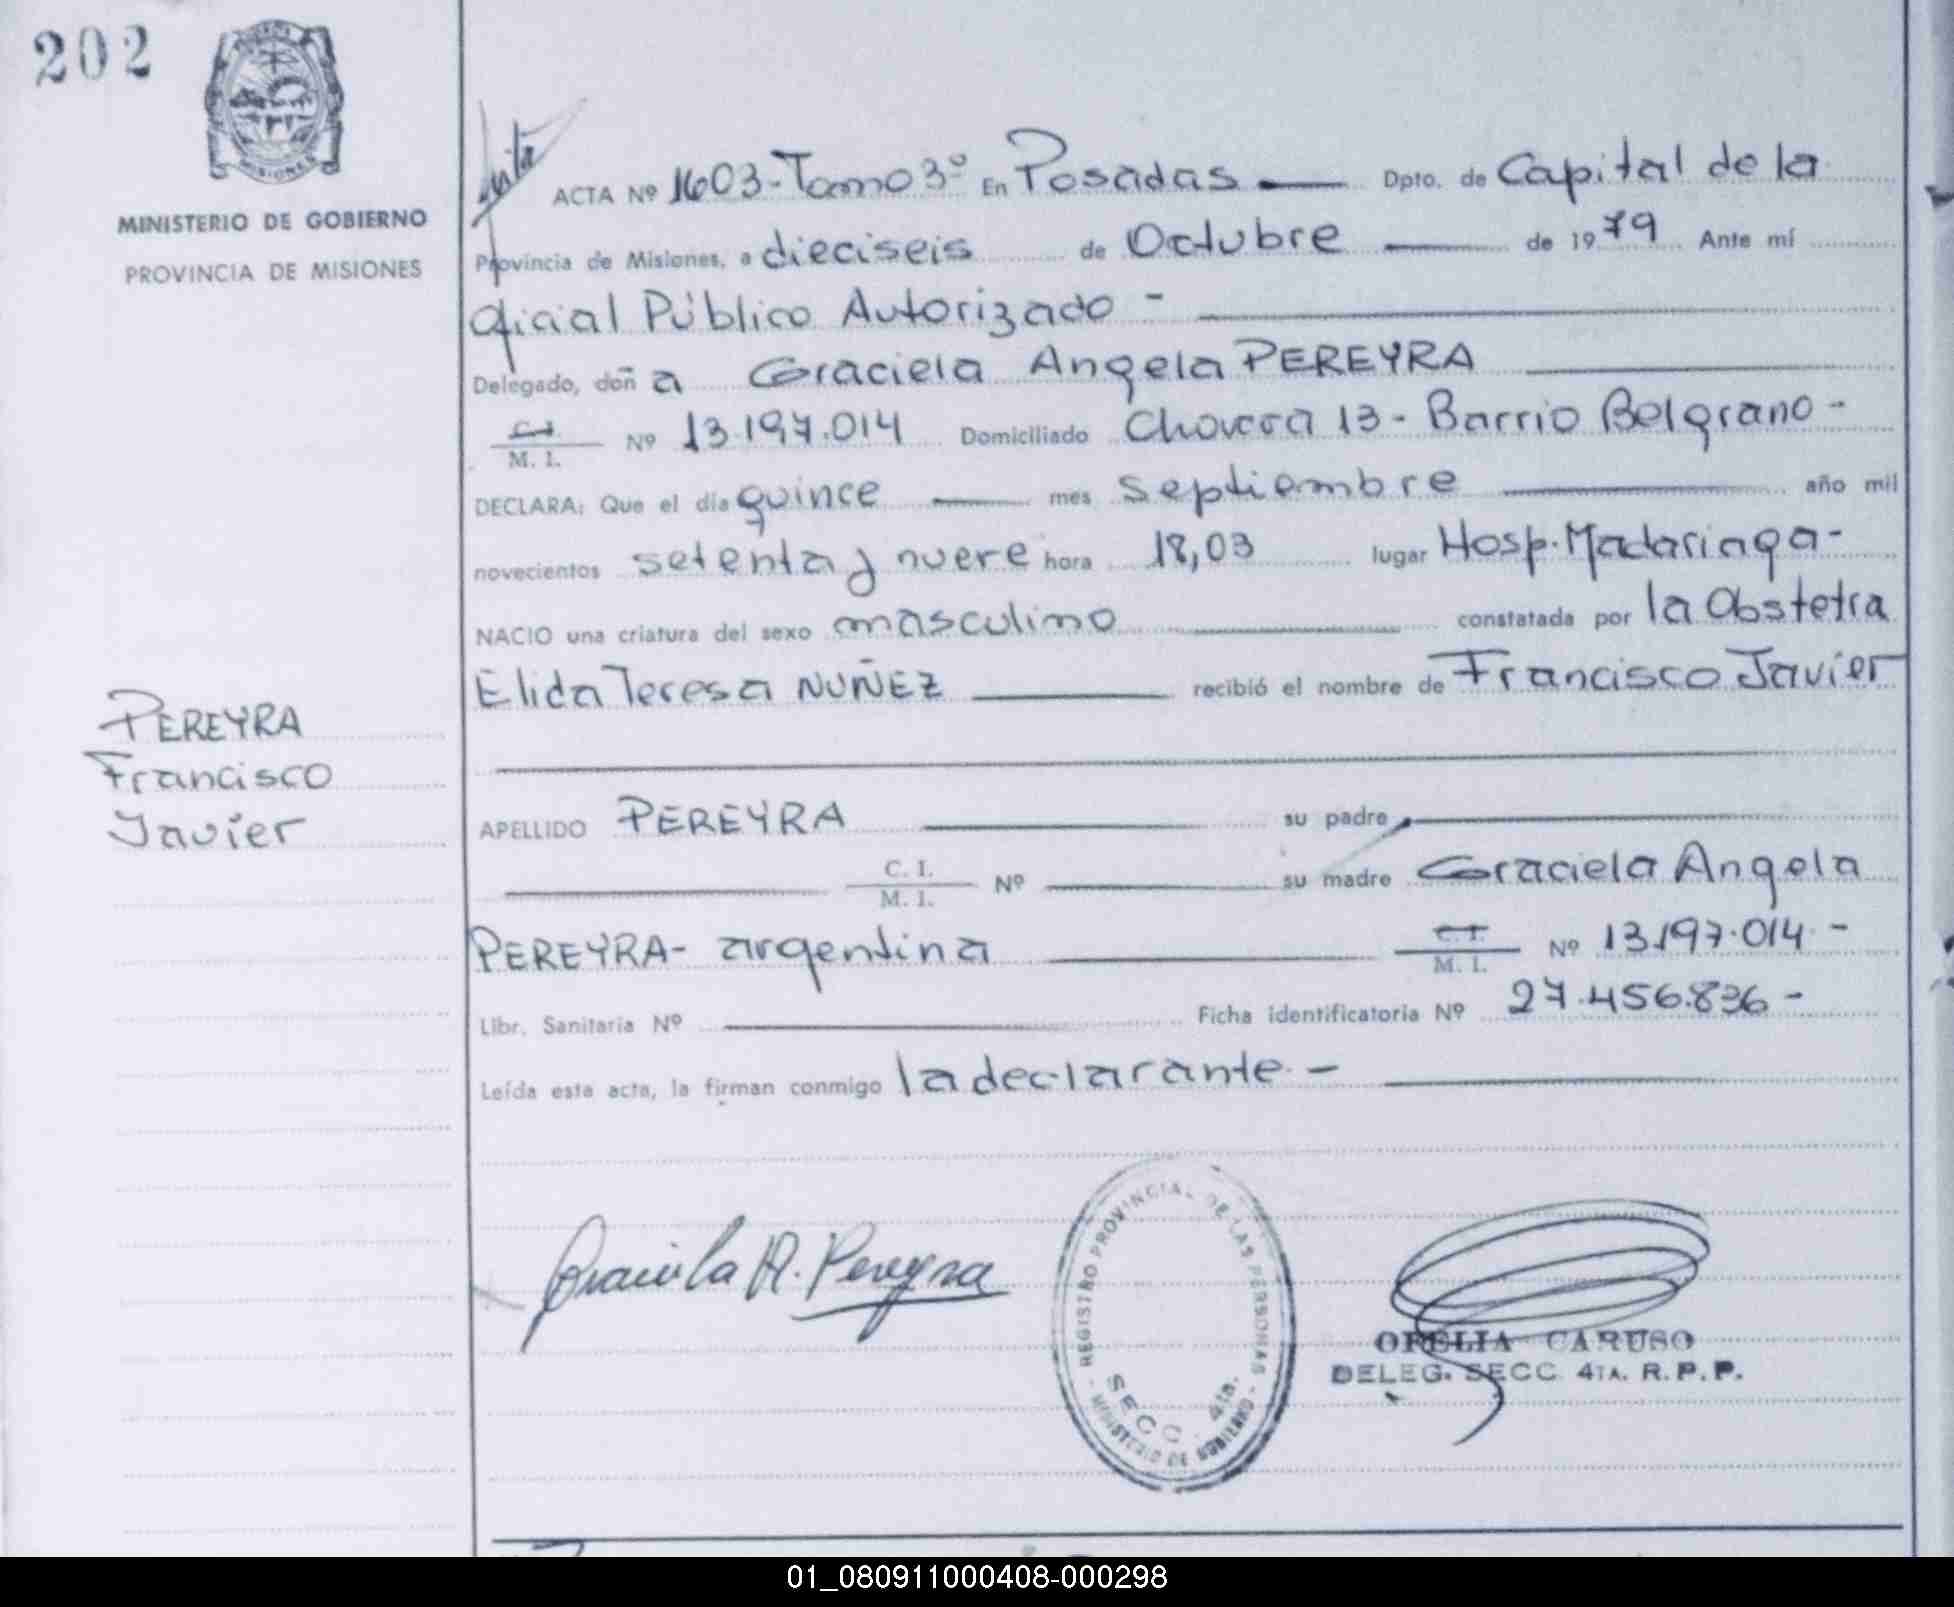 202
MINISTERIO DE GOBIERNO
PROVINCIA DE MISIONES
ACTA Nº 1603-Tomo 3º En Posadas — Dpto. de Capital de la
Provincia de Misiones, a dieciseis de Octubre — de 1979 Ante mí
Oficial Público Autorizado -
Delegado, doña Graciela Angela PEREYRA
C.I.
M. I. Nº 13.197.014 Domiciliado Chovera 13 - Barrio Belgrano -
DECLARA: Que el día quince — mes septiembre — año mil
novecientos setenta y nueve hora 18,03 lugar Hosp. Madariaga -
NACIO una criatura del sexo masculino — constatada por la Obstetra
Elida Teresa NUÑEZ — recibió el nombre de Francisco Javier
PEREYRA
Francisco
Javier
APELLIDO PEREYRA — su padre —
C. I.
M. I. Nº — su madre Graciela Angela
PEREYRA - argentina — C. I.
M. I. Nº 13.197.014 -
Libr. Sanitaria Nº — Ficha identificatoria Nº 27.456.836 -
Leída esta acta, la firman conmigo la declarante. -
Graciela A. Pereyra
REGISTRO PROVINCIAL DE LAS PERSONAS
SECC. 4ta.
MINISTERIO DE GOBIERNO
OFELIA CARUSO
DELEG. SECC 4TA. R. P. P.
01_080911000408-000298